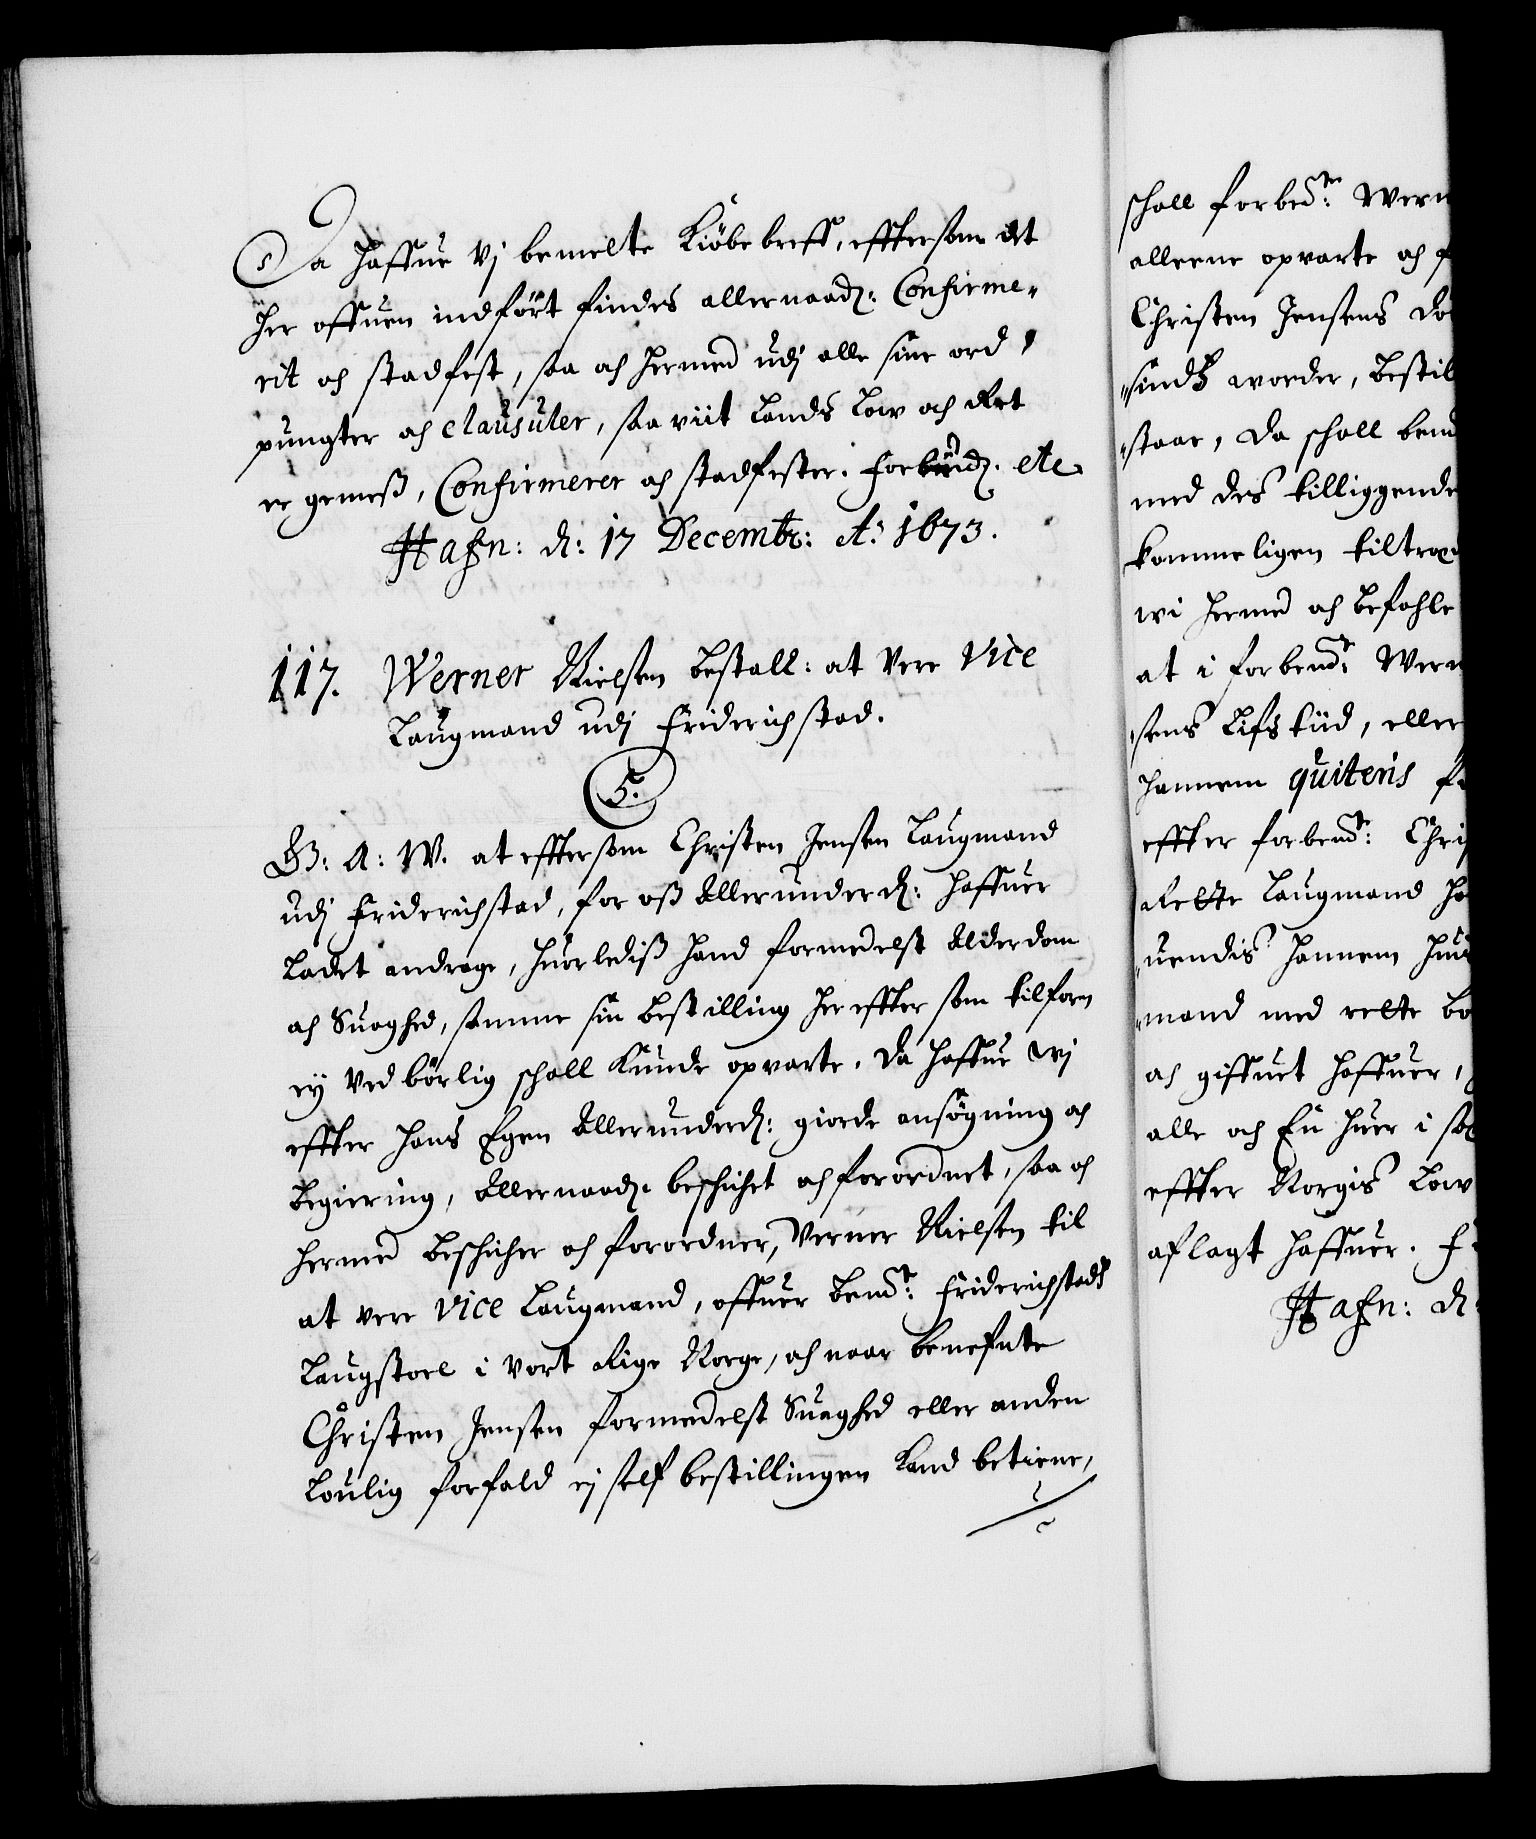 Da haffue Vj bemelte Kiöbebreff, efftersom det
her offuen indført findes allernaadz: Confirme-
rit och stadfest, saa och hermed udj alle sine ord,
pungter och clausuler, saa viit Lands Low och Ret
er gemeß, Confirmerer och stadfester. Forbiudz. etc
Hafn: d: 17 Decembr: Ao 1673.
117. Werner Nielsen bestall: at Vere Vice
Laugmand udj Friderichstad.
5.
G: A: W. at efftersom Christen Jensen Laugmand
udj Friderichstad, for oß Allerunderd: haffuer
Ladet andrage, huorlediß hand formedelst Alderdom
och Suaghed, samme sin bestilling her effter som tilforn
ey Ved börlig schall Kunde opvarte. Da haffue Wj
effter hans Egen Allerunderd: giorde ansøgning och
begiering, Allernaadz. beschichet och forordnet, saa och
hermed beschicher och forordner, Verner Nielsen til
at vere Vice Laugmand, offuer bemte: Friderichstads
Laugstoel i Vort Rige Norge, och naar benefnte
Christen Jensen formedelst Suaghed eller anden
Loulig forfald ej self bestillingen Kand betiene,
schall forbete: Wern
alleene opvarte och f
Christen Jensens dö
sindß worder, bestil
staar, da schall bem
med des tilliggende
kommeligen tiltræd
wi hermed och befahle
at i forbemte: Wern
sens Lifs tiid, eller
hannem quiteris f
effter forbemte: Chri
Rette Laugmand ho
uendis hannem hui
mand med rette bö
och giffuet haffuer,
alle och En huer i sæ
effter Norgis Low
aflagt haffuer. F
Hafn: d: